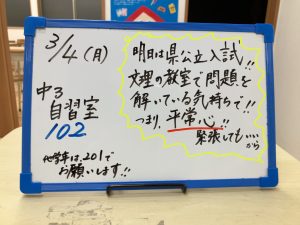 3/4(月)
中3
自習室
102
他学年は、201で
お願いします!!
明日は県公立入試!!
文理の教室で問題を
解いている気持ちで!!
つまり、平常心!!
緊張しても…
から